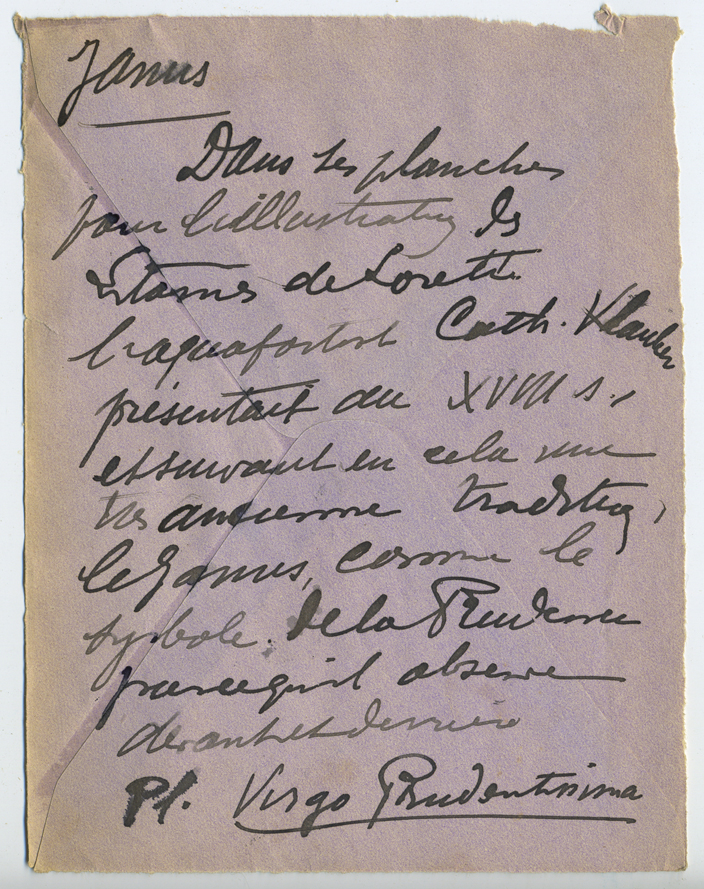 Janus
Dans ses planches
pour l'illustration des
Litanies de Lorette
l'aquafortiste Cath. Klauber
présentait au XVIII s.,
et suivant en cela une
très ancienne tradition,
le Janus, comme le
symbole de la Prudence
parcequ'il observe
devant et derrière
Pl. Virgo Prudentissima